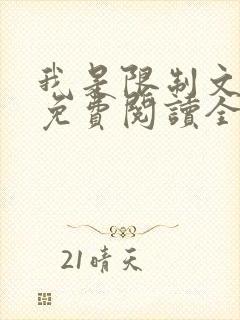 我是限制文
免費閱讀全
21晴天